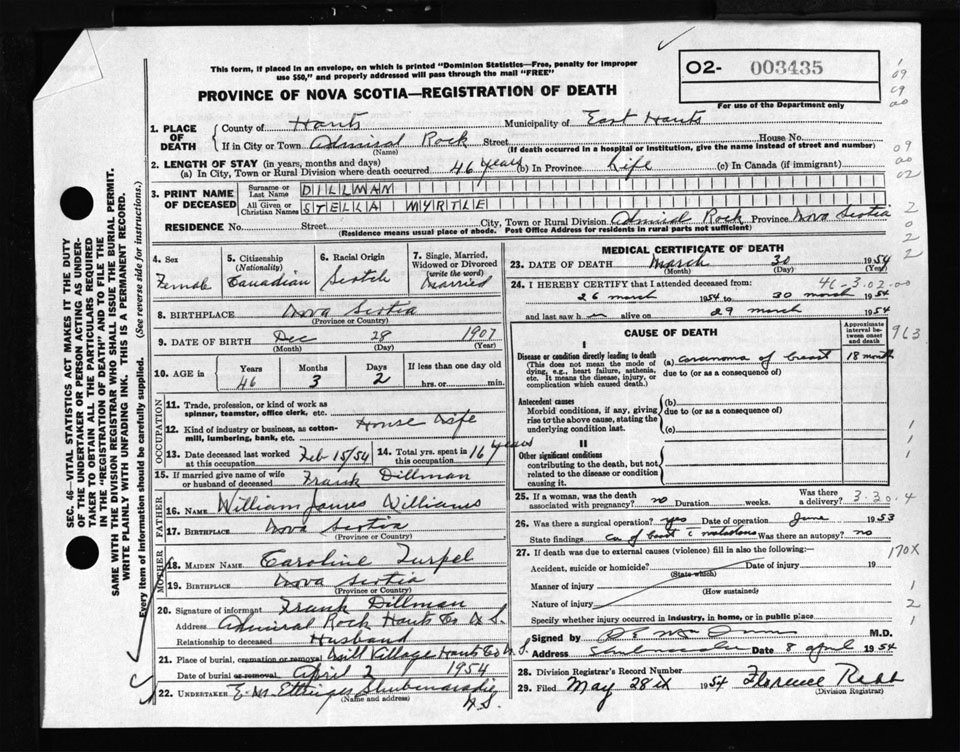 This form, if placed in an envelope, on which is printed "Dominion Statistics—Free, penalty for improper
use $50," and properly addressed will pass through the mail "FREE"
PROVINCE OF NOVA SCOTIA—REGISTRATION OF DEATH
O2- 003435
For use of the Department only
1. PLACE OF DEATH
County of Hants Municipality of East Hants
If in City or Town Admiral Rock Street House No.
(Name) (If death occurred in a hospital or institution, give the name instead of street and number)
2. LENGTH OF STAY (in years, months and days)
(a) In City, Town or Rural Division where death occurred 46 years (b) In Province Life (c) In Canada (if immigrant)
3. PRINT NAME OF DECEASED
Surname or Last Name DILLMAN
All Given or Christian Names STELLA MYRTLE
RESIDENCE No. Street City, Town or Rural Division Admiral Rock Province Nova Scotia
(Residence means usual place of abode. Post Office Address for residents in rural parts not sufficient)
4. Sex Female
5. Citizenship (Nationality) Canadian
6. Racial Origin Scotch
7. Single, Married, Widowed or Divorced (write the word) Married
8. BIRTHPLACE Nova Scotia
(Province or Country)
9. DATE OF BIRTH Dec 28 1907
(Month) (Day) (Year)
10. AGE in Years 46 Months 3 Days 2 If less than one day old hrs. or min.
OCCUPATION
11. Trade, profession, or kind of work as spinner, teamster, office clerk, etc.
12. Kind of industry or business, as cotton-mill, lumbering, bank, etc. House Wife
13. Date deceased last worked at this occupation Feb 15/54
14. Total yrs. spent in this occupation 16 years
15. If married give name of wife or husband of deceased Frank Dillman
FATHER
16. NAME William James Williams
17. BIRTHPLACE Nova Scotia
(Province or Country)
MOTHER
18. MAIDEN NAME Caroline Turpel
19. BIRTHPLACE Nova Scotia
(Province or Country)
20. Signature of informant Frank Dillman
Address Admiral Rock Hants Co N.S.
Relationship to deceased Husband
21. Place of burial, cremation or removal Mill Village Hants Co N.S.
Date of burial or removal April 2 1954
22. UNDERTAKER E. M. Ettinger Shubenacadie
(Name and address) N.S.
MEDICAL CERTIFICATE OF DEATH
23. DATE OF DEATH March 30 1954
(Month) (Day) (Year)
24. I HEREBY CERTIFY that I attended deceased from: 46-3.02-00
26 march 1954 to 30 march 1954
and last saw h er alive on 29 march 1954
CAUSE OF DEATH
Approximate interval between onset and death
I
Disease or condition directly leading to death
(This does not mean the mode of dying, e.g., heart failure, asthenia, etc. It means the disease, injury, or complication which caused death.)
(a) carcinoma of breast 18 month
due to (or as a consequence of)
Antecedent causes
Morbid conditions, if any, giving rise to the above cause, stating the underlying condition last.
(b)
due to (or as a consequence of)
(c)
II
Other significant conditions
contributing to the death, but not related to the disease or condition causing it.
25. If a woman, was the death associated with pregnancy? no Duration weeks. Was there a delivery? 3.30.4
26. Was there a surgical operation? yes Date of operation June 1953
State findings Ca of breast c metastases Was there an autopsy? no
27. If death was due to external causes (violence) fill in also the following:—
Accident, suicide or homicide? Date of injury 19
(State which)
Manner of injury
(How sustained)
Nature of injury
Specify whether injury occurred in industry, in home, or in public place
Signed by M.D.
Address Shubenacadie Date 8 April 1954
28. Division Registrar's Record Number
29. Filed May 28th 1954 Florence Rabb
(Division Registrar)
SEC. 46—VITAL STATISTICS ACT MAKES IT THE DUTY
OF THE UNDERTAKER OR PERSON ACTING AS UNDER-
TAKER TO OBTAIN ALL THE PARTICULARS REQUIRED
IN THE "REGISTRATION OF DEATH" AND TO FILE THE
SAME WITH THE DIVISION REGISTRAR WHO SHALL ISSUE THE BURIAL PERMIT.
WRITE PLAINLY WITH UNFADING INK. THIS IS A PERMANENT RECORD.
Every item of information should be carefully supplied. (See reverse side for instructions.)
1
09
09
00
09
00
02
2
0
2
2
963
1
1
1
170X
1
2
1